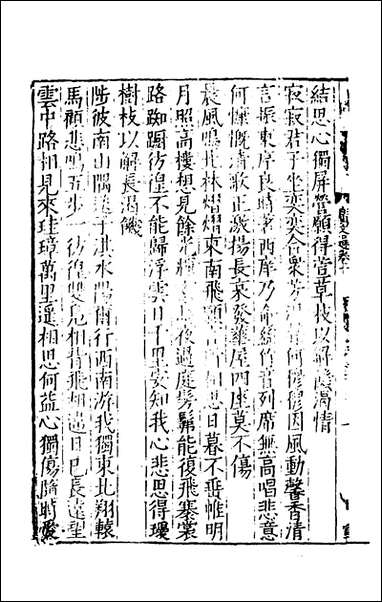 結思心獨屏營願得萱草枝以解饑渴情
寂寂君子坐奕奕合衆芳温聲何穆穆因風動馨香清
言振東序良時著西庠乃命絲竹音列席無高唱悲意
何慷慨清歌正激揚長哀發華屋四座莫不傷
晨風鳴北林熠燿東南飛願言所相思日暮不垂帷明
月照高樓想見餘光輝玄鳥夜過庭髣髴能復飛褰裳
路踟蹰彷徨不能歸浮雲日千里安知我心悲思得瓊
樹枝以解長渴饑
陟彼南山隅送子淇水陽爾行西南游我獨東北翔轅
馬顧悲鳴五步一彷徨雙鳧相背飛相遠日已長遠望
雲中路相見來珪璋萬里遥相思何益心獨傷隨時愛